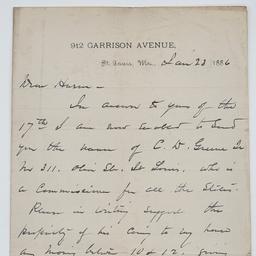 912 GARRISON AVENUE,
St. Louis, Mo., Jan 23 1886
Dear Huson -
In answer to yours of the
17th I am now enabled to send
you the name of C. D. Greene Jr
No 311. Olive St. St Louis, who is
a Commissioner for all the States.
Please in writing suggest the
propriety of his coming to my house
any morning between 10 & 12, giving